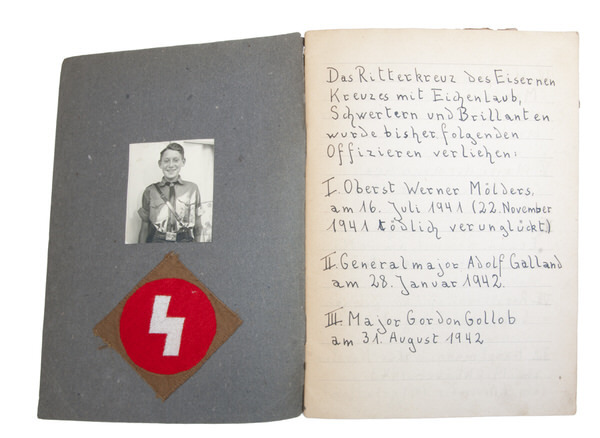 Das Ritterkreuz des Eisernen
Kreuzes mit Eichenlaub,
Schwertern und Brillanten
wurde bisher folgenden
Offizieren verliehen:
I. Oberst Werner Mölders,
am 16. Juli 1941 (22. November
1941 tödlich verunglückt)
II. Generalmajor Adolf Galland
am 28. Januar 1942.
III. Major Gordon Gollob
am 31. August 1942